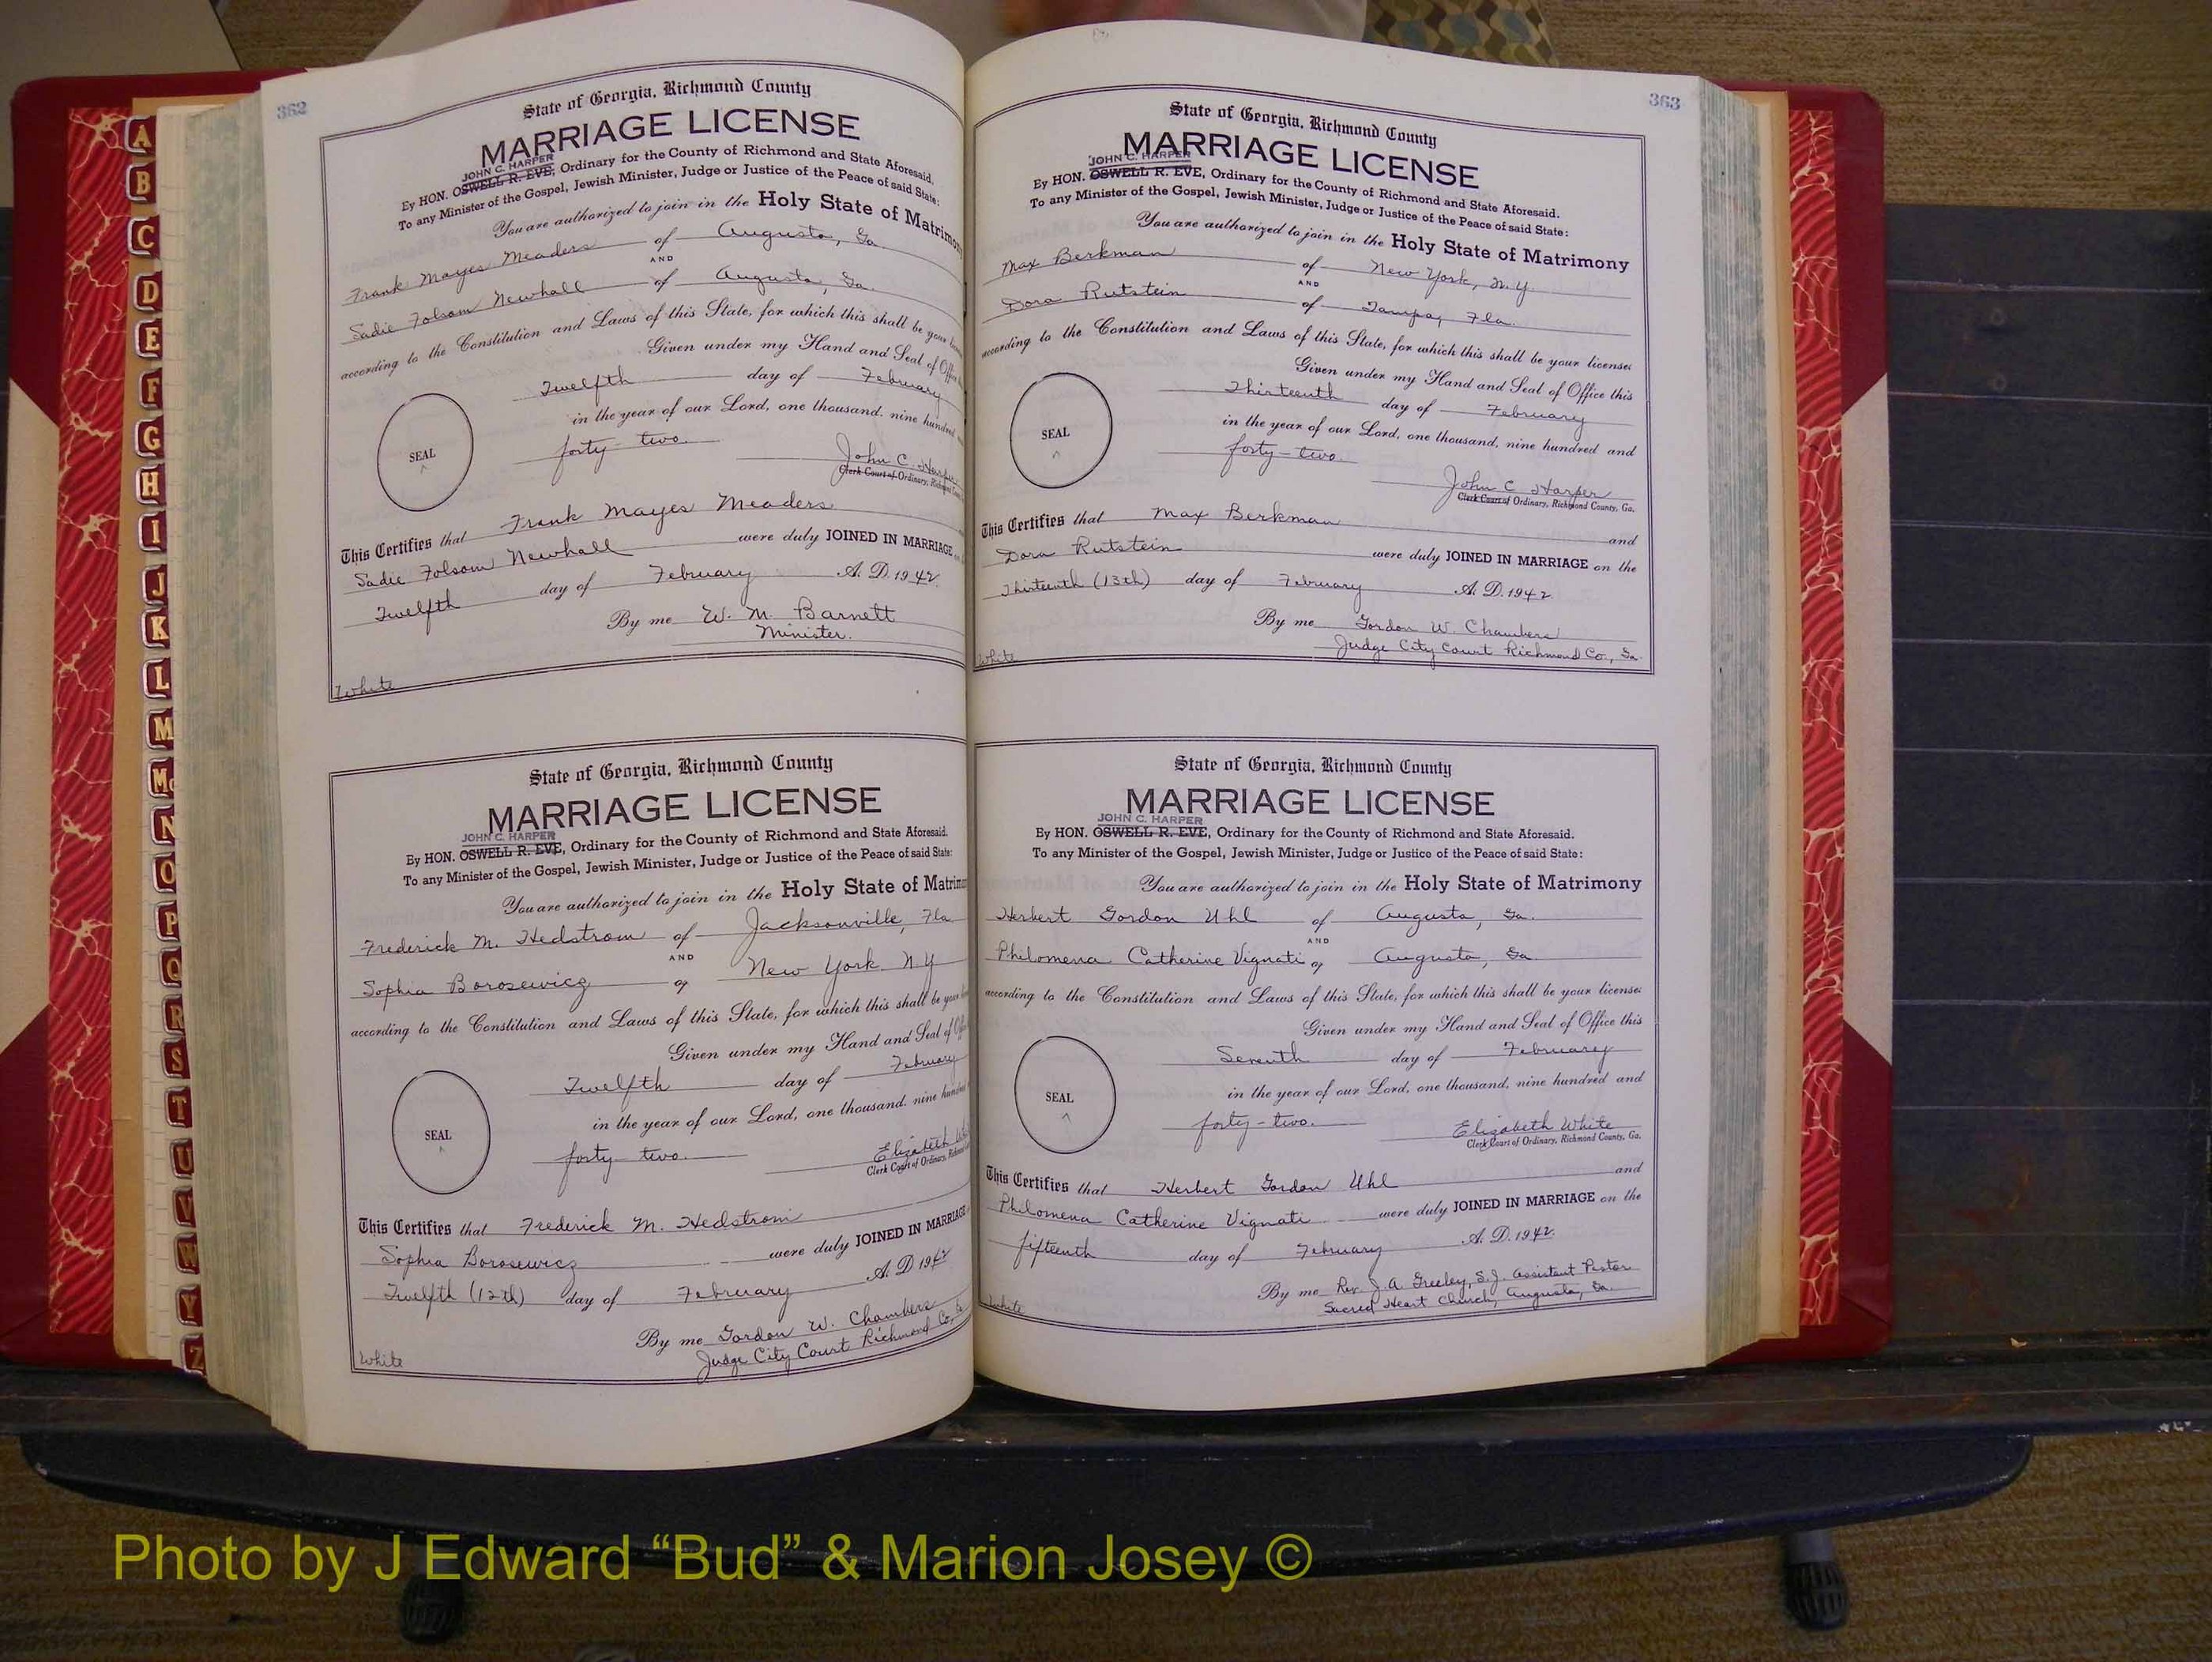 362
State of Georgia, Richmond County
MARRIAGE LICENSE
JOHN C. HARPER
By HON. OSWELL R. EVE, Ordinary for the County of Richmond and State Aforesaid.
To any Minister of the Gospel, Jewish Minister, Judge or Justice of the Peace of said State:
You are authorized to join in the Holy State of Matrimony
Frank Mayes Meaders of Augusta, Ga.
AND
Sadie Folsom Newhall of Augusta, Ga.
according to the Constitution and Laws of this State, for which this shall be your
Given under my Hand and Seal of
Twelfth day of February
in the year of our Lord, one thousand, nine hundred
forty-two.
SEAL
John C. Harper
Clerk Court of Ordinary,
This Certifies that Frank Mayes Meaders
Sadie Folsom Newhall were duly JOINED IN MARRIAGE
Twelfth day of February A. D. 1942
By me W. M. Barnett
Minister.
White
State of Georgia, Richmond County
MARRIAGE LICENSE
JOHN C. HARPER
By HON. OSWELL R. EVE, Ordinary for the County of Richmond and State Aforesaid.
To any Minister of the Gospel, Jewish Minister, Judge or Justice of the Peace of said State:
You are authorized to join in the Holy State of
Frederick M. Hedstrom of Jacksonville, Fla.
AND
Sophia Borosewicz of New York, N.Y.
according to the Constitution and Laws of this State, for which this shall be your
Given under my Hand and Seal of
Twelfth day of February
in the year of our Lord, one thousand, nine
forty-two.
SEAL
Elizabeth
Clerk Court of Ordinary,
This Certifies that Frederick M. Hedstrom
Sophia Borosewicz were duly JOINED IN MARRIAGE
Twelfth (12th) day of February A. D. 1942
By me Gordon W. Chambers
Judge City Court Richmond Co., Ga.
White
363
State of Georgia, Richmond County
MARRIAGE LICENSE
JOHN C. HARPER
By HON. OSWELL R. EVE, Ordinary for the County of Richmond and State Aforesaid.
To any Minister of the Gospel, Jewish Minister, Judge or Justice of the Peace of said State:
You are authorized to join in the Holy State of Matrimony
Max Berkman of New York, N.Y.
AND
Dora Rutstein of Tampa, Fla.
according to the Constitution and Laws of this State, for which this shall be your license:
Given under my Hand and Seal of Office this
Thirteenth day of February
in the year of our Lord, one thousand, nine hundred and
forty-two.
SEAL
John C Harper
Clerk Court of Ordinary, Richmond County, Ga.
This Certifies that Max Berkman and
Dora Rutstein were duly JOINED IN MARRIAGE on the
Thirteenth (13th) day of February A. D. 1942
By me Gordon W. Chambers
Judge City Court Richmond Co., Ga.
White
State of Georgia, Richmond County
MARRIAGE LICENSE
JOHN C. HARPER
By HON. OSWELL R. EVE, Ordinary for the County of Richmond and State Aforesaid.
To any Minister of the Gospel, Jewish Minister, Judge or Justice of the Peace of said State:
You are authorized to join in the Holy State of Matrimony
Herbert Gordon Uhl of Augusta, Ga.
AND
Philomena Catherine Vignati of Augusta, Ga.
according to the Constitution and Laws of this State, for which this shall be your license:
Given under my Hand and Seal of Office this
Seventh day of February
in the year of our Lord, one thousand, nine hundred and
forty-two.
SEAL
Elizabeth White
Clerk Court of Ordinary, Richmond County, Ga.
This Certifies that Herbert Gordon Uhl and
Philomena Catherine Vignati were duly JOINED IN MARRIAGE on the
fifteenth day of February A. D. 1942.
By me Rev. J. A. Greeley, S.J. Assistant Pastor
Sacred Heart Church, Augusta, Ga.
White
A
B
C
D
E
F
G
H
I
J
K
L
M
Mc
N
O
P
Q
R
S
T
U
V
W
Y
Z
Photo by J Edward “Bud” & Marion Josey ©